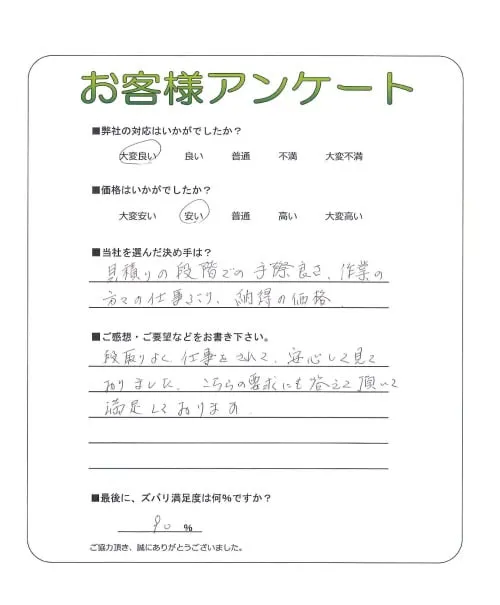 お客様アンケート
■弊社の対応はいかがでしたか？
大変良い 良い 普通 不満 大変不満
■価格はいかがでしたか？
大変安い 安い 普通 高い 大変高い
■当社を選んだ決め手は？
見積りの段階での手際良さ、作業の
方々の仕事ぶり、納得の価格
■ご感想・ご要望などをお書き下さい。
段取りよく仕事をされて、安心して見て
おりました。こちらの要求にも答えて頂いて
満足しております。
■最後に、ズバリ満足度は何％ですか？
90 ％
ご協力頂き、誠にありがとうございました。